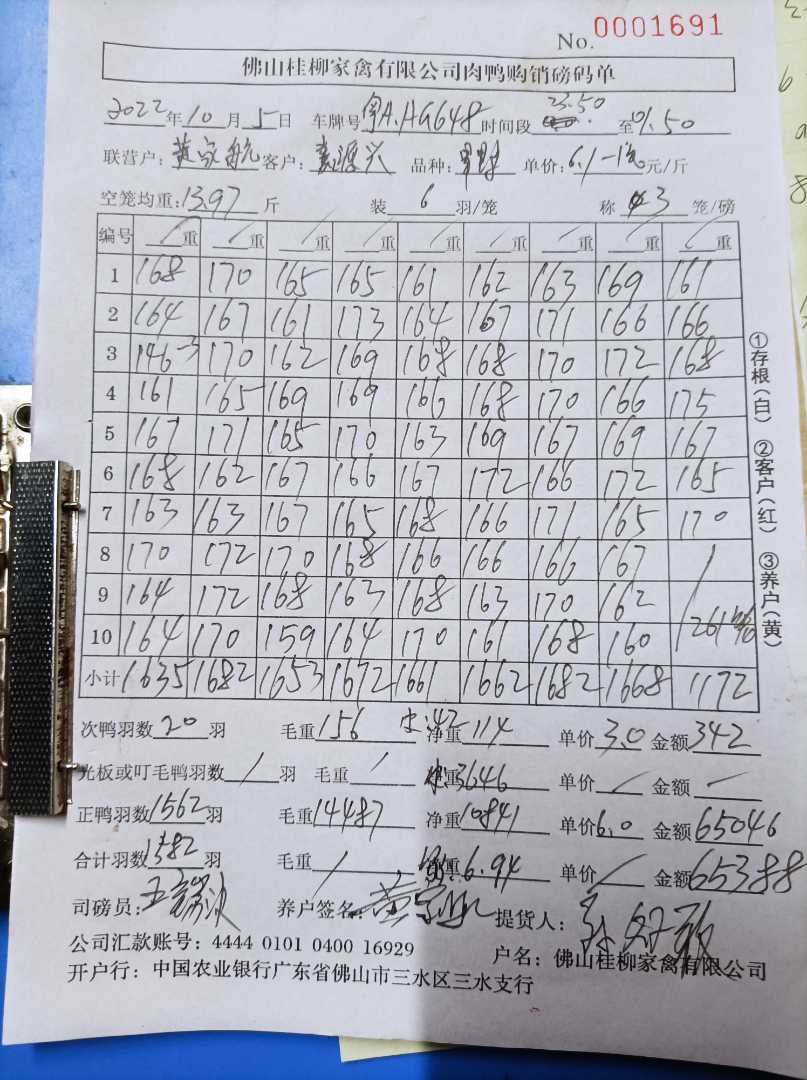 No. 0001691
佛山桂柳家禽有限公司肉鸭购销磅码单
2022年10月5日 车牌号粤A.HG648时间段23:50至01.50
联营户: 黄家航 客户: 兴 品种: 单价: 6.1- 元/斤
空笼均重: 13.97 斤 装 6 羽/笼 称 3 笼/磅
编号 /重 /重 /重 /重 /重 /重 /重 /重 /重
1 168 170 165 165 161 162 163 169 161
2 164 167 161 173 164 167 171 166 166
3 146-3 170 162 169 168 168 170 172 168
4 161 165 169 169 166 168 170 166 175
5 167 171 165 170 163 169 167 169 167
6 168 162 167 166 167 172 166 172 165
7 163 163 167 165 168 166 171 165 170
8 170 172 170 168 166 166 166 167 /
9 164 172 168 163 168 163 170 162
10 164 170 159 164 170 161 168 160 261
小计 1635 1682 1653 1672 1661 1662 1682 1668 1172
①存根(白) ②客户(红) ③养户(黄)
次鸭羽数 20 羽 毛重 156 :42 净重 114 单价 3.0 金额 342
光板或叮毛鸭羽数 / 羽 毛重 / 3646 单价 / 金额 /
正鸭羽数 1562 羽 毛重 14487 净重 10841 单价 6.0 金额 65046
合计羽数 1582 羽 毛重 / 6.94 单价 / 金额 65388
司磅员: 王 养户签名 黄家航 提货人:
公司汇款账号: 4444 0101 0400 16929 户名: 佛山桂柳家禽有限公司
开户行: 中国农业银行广东省佛山市三水区三水支行